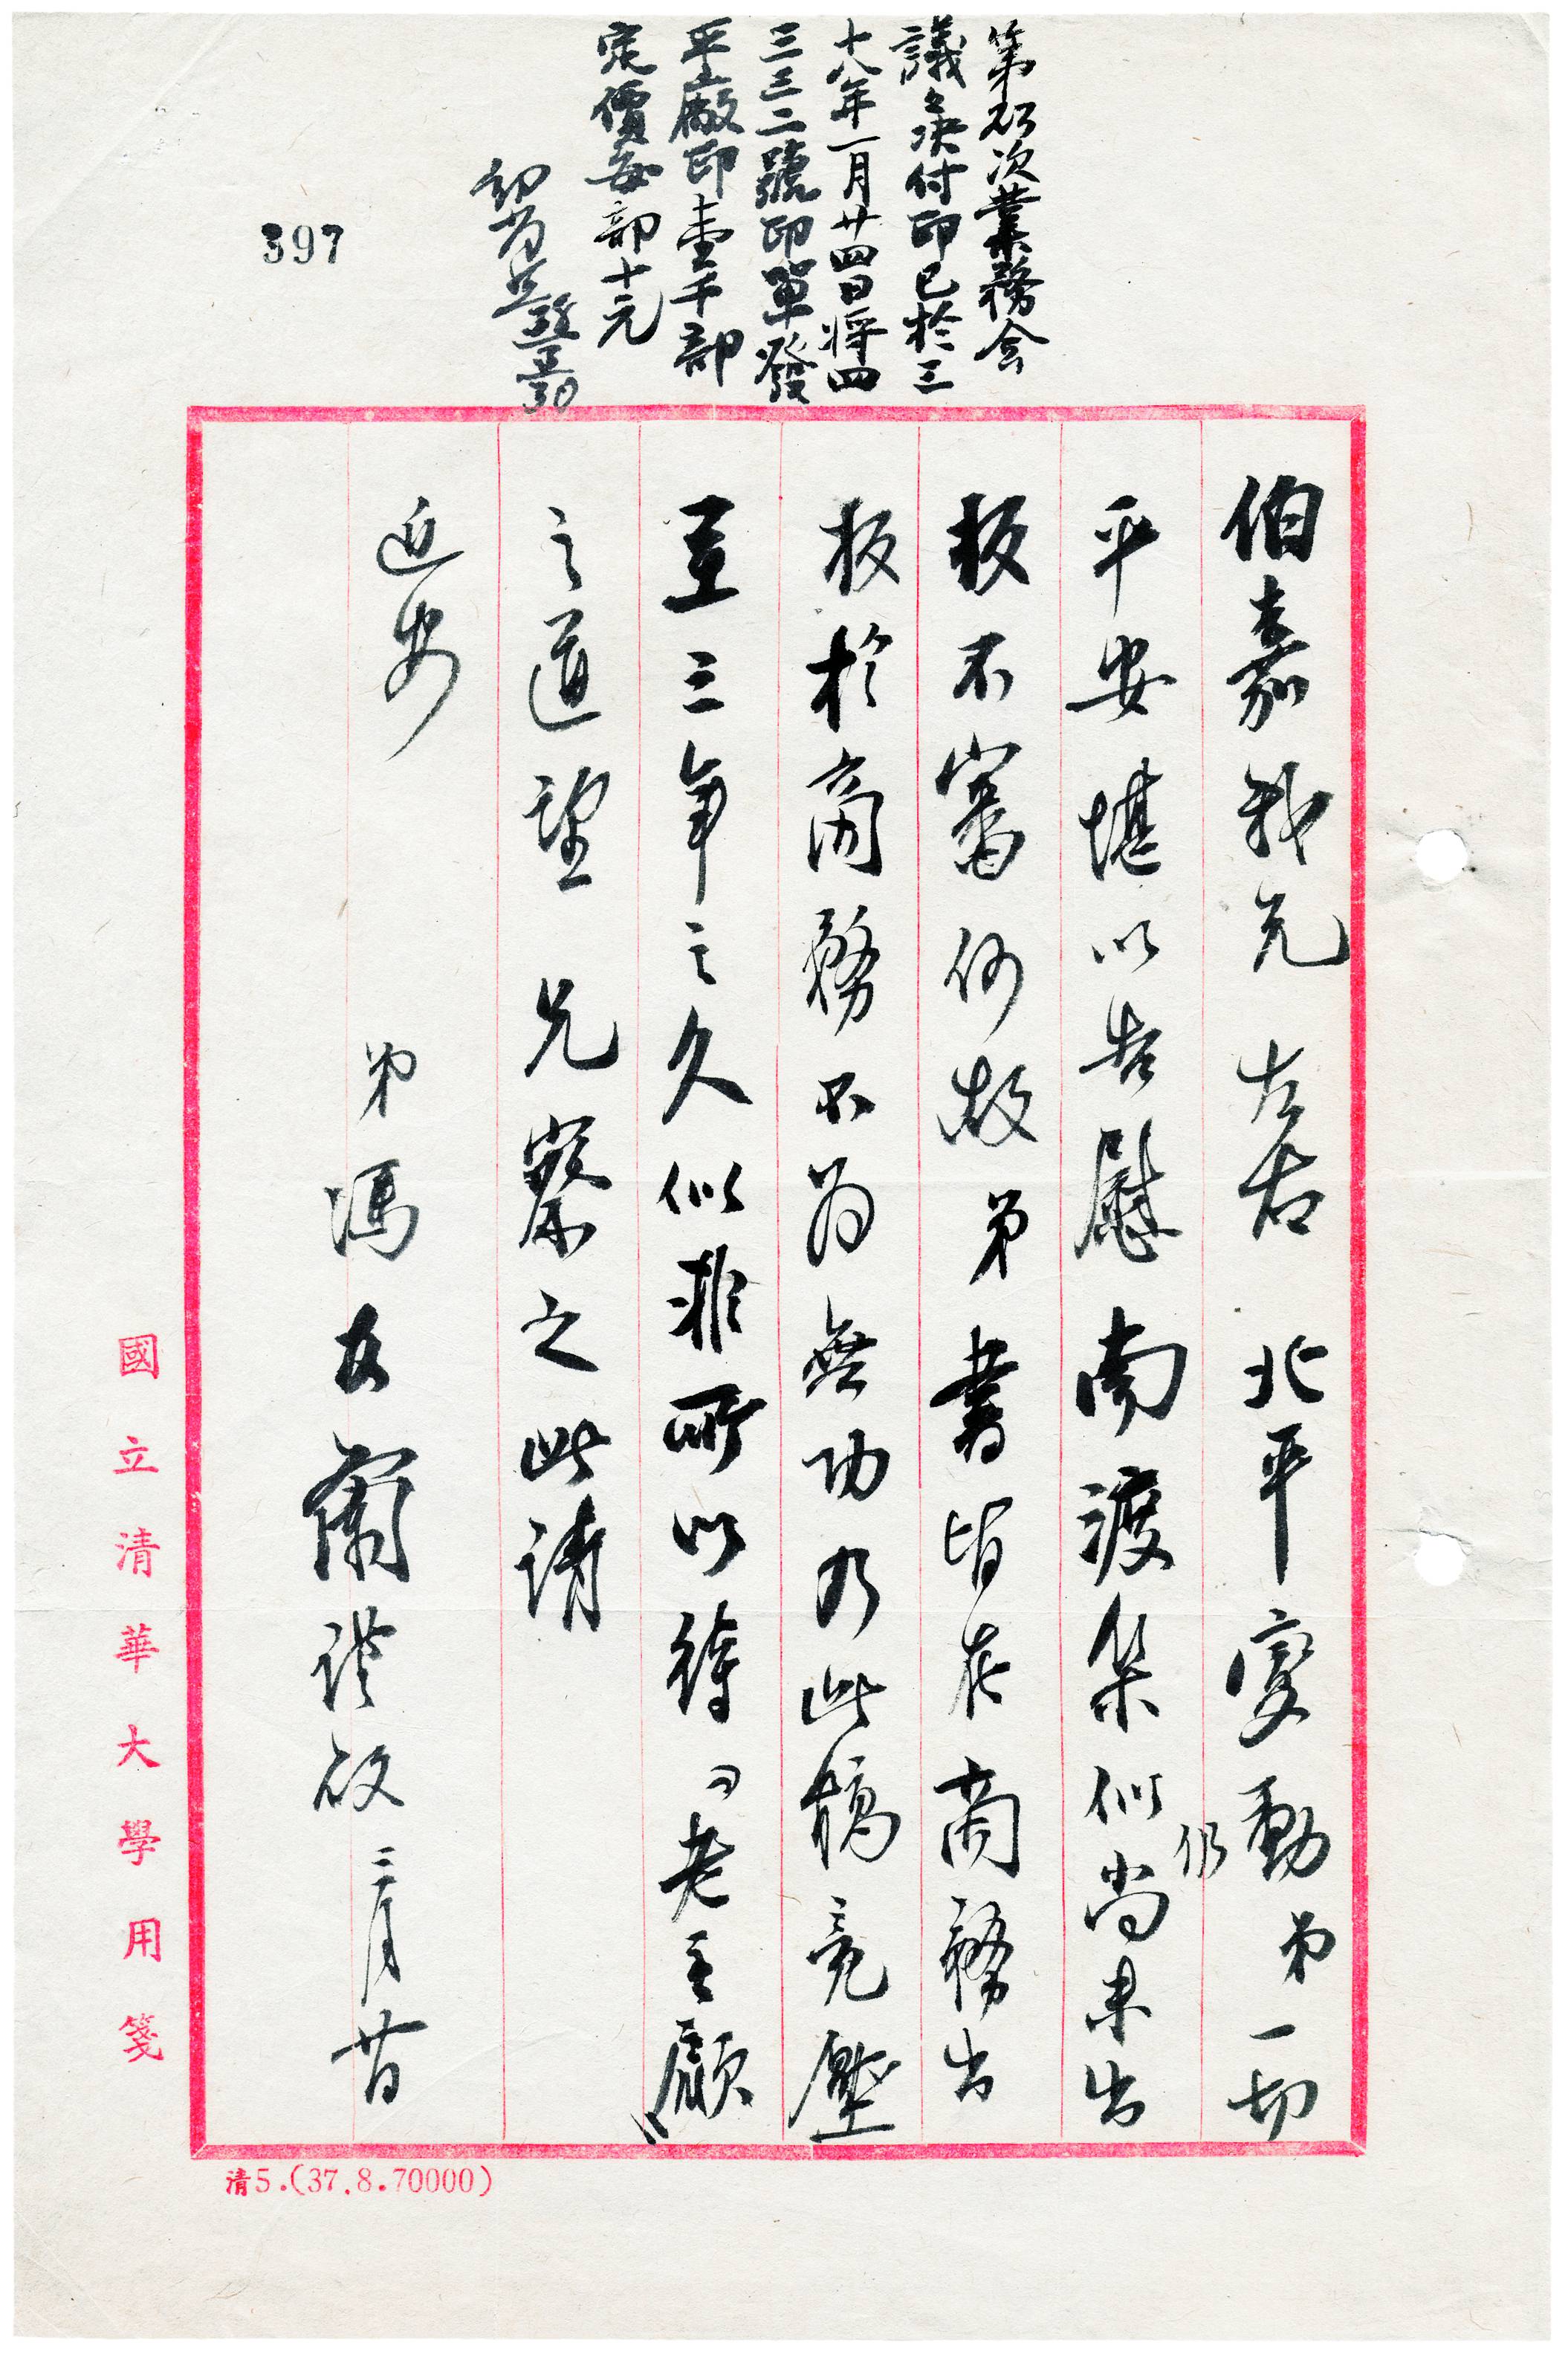 第
次業務会
議决付印已於三
十八年一月廿四日將四
三三二號印單發
平廠印壹千部
定價每部十元
397
伯嘉我兄 左右 北平變動弟一切
仍
平安堪以告慰南渡集似尚未出
板不審何故弟書皆在商務出
板於商務不为無功乃此稿竟壓
至三年之久似非所以待「老主顧」
之道望 兄察之此請
近安
弟馮友蘭謹啟 二月廿日
國立清華大學用箋
清5.(37.8.70000)